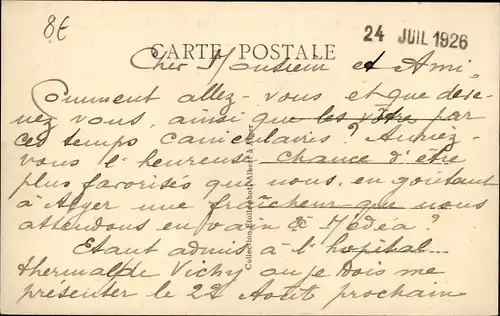 8€
CARTE POSTALE
24 JUIL 1926
Cher Monsieur et Ami,
Comment allez-vous et que deve-
nez vous, ainsi que les vôtres par
ces temps caniculaires? Auriez-
vous l'heureuse chance d'être
plus favorisés que nous, en goûtant
à Alger une fraîcheur que nous
attendons en vain à Médéa?
Etant admis à l'hopital...
thermal de Vichy ou je dois me
présenter le 22 Août prochain
Collection Etoile, Photo Albert à Alger